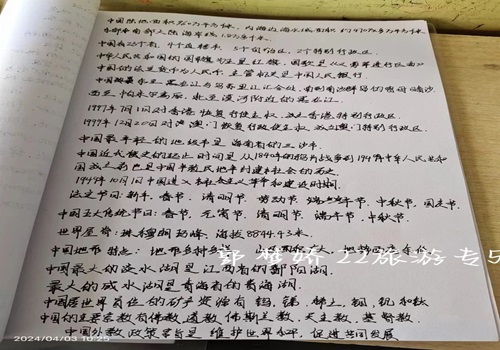 中国陆地面积960万平方千米，内海边海水域面积约470万多万平方千米
东部和南部大陆海岸线1.8万多千米。
中国有23个省，4个直辖市 5个自治区，2个特别行政区。
中华人民共和国的国旗是五星红旗，国歌是《义勇军进行曲》
中国的法定货币为人民币 主管机关是中国人民银行
中国 黑龙江与乌苏里江汇合处 南到南沙群岛的曾母暗沙
西至帕米尔高原 北至漠河附近的黑龙江。
1997年7月1日对香港恢复行使主权 设立香港特别行政区
1999年12月20日对澳门恢复行政使主权 设立澳门特别行政区。
中国最年轻的地级市是海南省的三沙市
中国近代史的起止时间是从1840年的鸦片战争到1949年中华人民共和
国成立 是中国半殖民地半封建社会的历史。
1949年10月1日中国进入社会主义革命和建设时期。
法定节日：新年 春节 清明节 劳动节 端午节 中秋节 国庆节
中国五大传统节日：春节、元宵节、清明节、端午节、中秋节、
世界屋脊：珠穆朗玛峰，海拔8844.43米
中国地形特点：地形多种多样
中国最大的淡水湖是江西省的鄱阳湖。
最大的咸水湖是青海省的青海湖
中国居世界首位的矿产资源有钨、锑、稀土、钼、钒和钛
中国的主要宗教有佛教，道教，伊斯兰教，天主教，基督教
中国外教政策宗旨是 维护世界和平，促进共同发展
22旅游专5
2024/04/03 10:25